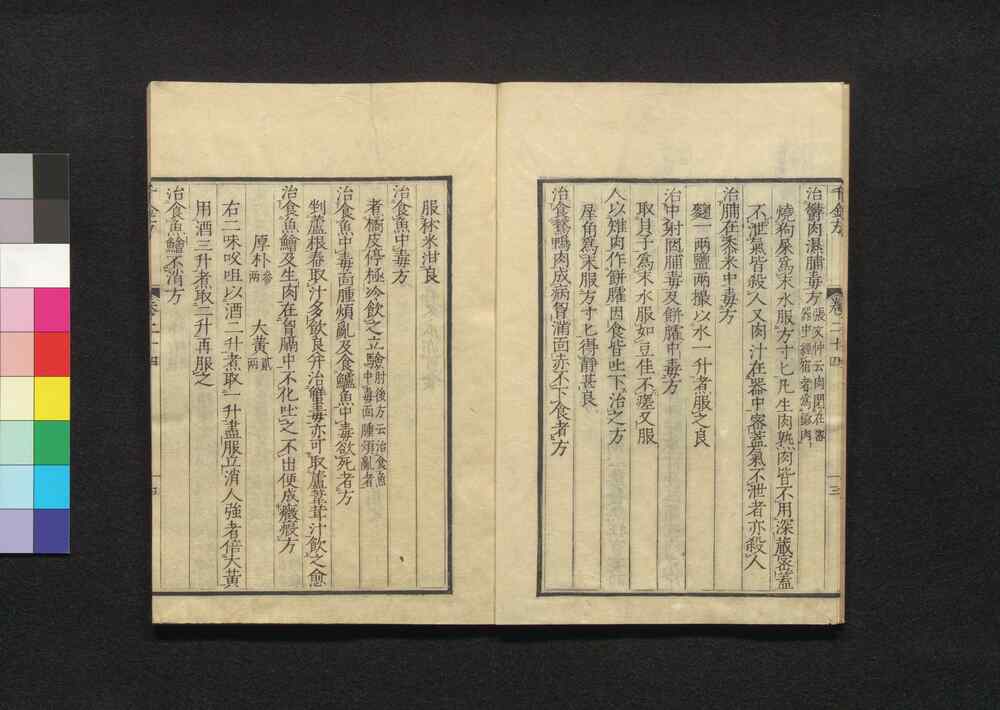 治鬱肉湿脯毒方張文仲云肉閉在密器中經宿者爲鬱肉
燒狗屎爲末水服方寸匕凡生肉熟肉皆不用深藏密蓋
不泄氣皆殺人又肉汁在器中密蓋氣不泄者亦殺人
治脯在黍米中毒方
麹一兩鹽兩撮以水一升煮服之良
治中射罔脯毒及餅臛中毒方
取貝子爲末水服如豆佳不瘥又服
人以雉肉作餅臛因食皆吐下治之方
犀角爲末服方寸匕得靜甚良
治食鵞鴨肉成病胷滿面赤不下食者方
千金方
卷二十四
十三
服秫米泔良
治食魚中毒方
煮橘皮停極冷飲之立驗肘後方云治食魚中毒面腫煩亂者
治食魚中毒面腫煩亂及食鱸魚中毒欲死者方
剉蘆根舂取汁多飲良并治蟹毒亦可取蘆葦茸汁飲之愈
治食魚鱠及生肉在胷膈中不化吐之不出便成癥瘕方
厚朴叁兩 大黄貳兩
右二味㕮咀以酒二升煮取一升盡服立消人強者倍大黄
用酒三升煮取二升再服之
治食魚鱠不消方
卷二十四